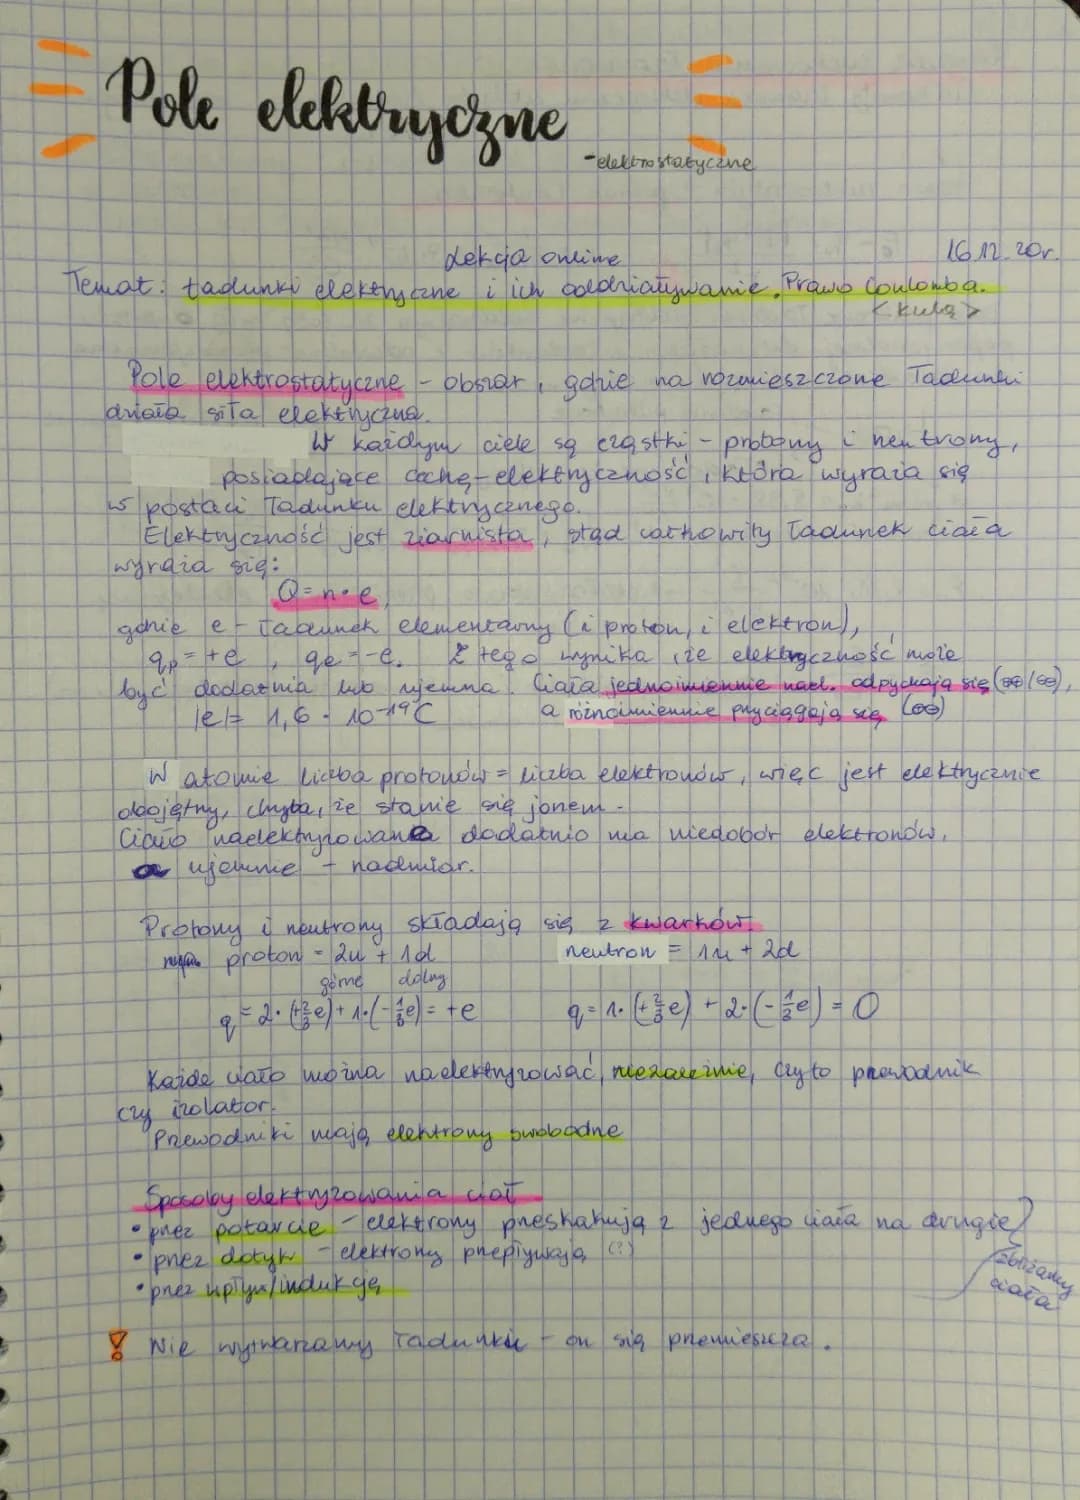 Pole elektryczne
-elektrostatyczne
Lekcja online 16.12.20r.
Temat: Ładunki elektryczne i ich oddziaływanie. Prawo Coulomba.
<kulą>
Pole elektrostatyczne - obszar, gdzie na rozmieszczone ładunki
działa siła elektryczna.
W każdym ciele są cząstki - protony i neutrony,
posiadające cechę - elektryczność, która wyraża się
w postaci ładunku elektrycznego.
Elektryczność jest ziarnista, stąd całkowity ładunek ciała
wyraża się:
Q = n · e,
gdzie e - ładunek elementarny (i proton, i elektron),
qp = +e, qe = -e. Z tego wynika, że elektryczność może
być dodatnia lub ujemna. Ciała jednoimiennie naeł. odpychają się (⊕⊕/⊖⊖),
|e| = 1,6 · 10⁻¹⁹C a różnoimiennie przyciągają się (⊕⊖)
W atomie liczba protonów = liczba elektronów, więc jest elektrycznie
obojętny, chyba, że stanie się jonem.
Ciało naelektryzowane dodatnio ma niedobór elektronów,
a ujemnie - nadmiar.
Protony i neutrony składają się z kwarków.
proton = 2u + 1d neutron = 1u + 2d
górne dolny
q = 2·(+⅔e) + 1·(-⅓e) = +e q = 1·(+⅔e) + 2·(-⅓e) = 0
Każde ciało można naelektryzować, niezależnie, czy to przewodnik
czy izolator.
Przewodniki mają elektrony swobodne
Sposoby elektryzowania ciał
• przez potarcie - elektrony przeskakują z jednego ciała na drugie
• przez dotyk - elektrony przepływają (?)
zbliżamy
ciała
• przez wpływ/indukcję
! Nie wytwarzamy ładunku - on się przemieszcza.